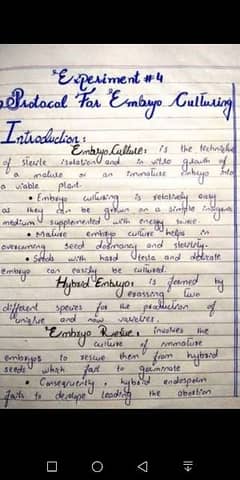 Experiment #4
Protocol For Embryo Culturing
Introduction:
Embryo Culture: is the technique
of sterile isolation and in vitro growth of
a mature or an immature embryo into
a viable plant.
• Embryo culturing is relatively easy
as they can be grown on a simple inorganic
medium supplemented with energy source.
• Mature embryo culture helps in
overcoming seed dormancy and sterility.
• Seeds with hard testa and delicate
embryo can easily be cultured.
Hybrid Embryo: is formed by
crossing two
different species for the production of
unique and new varieties.
Embryo Rescue: involves the
culture of immature
embryos to rescue them from hybrid
seeds which fail to germinate
• Consequently, hybrid endosperm
fails to develope leading the abortion